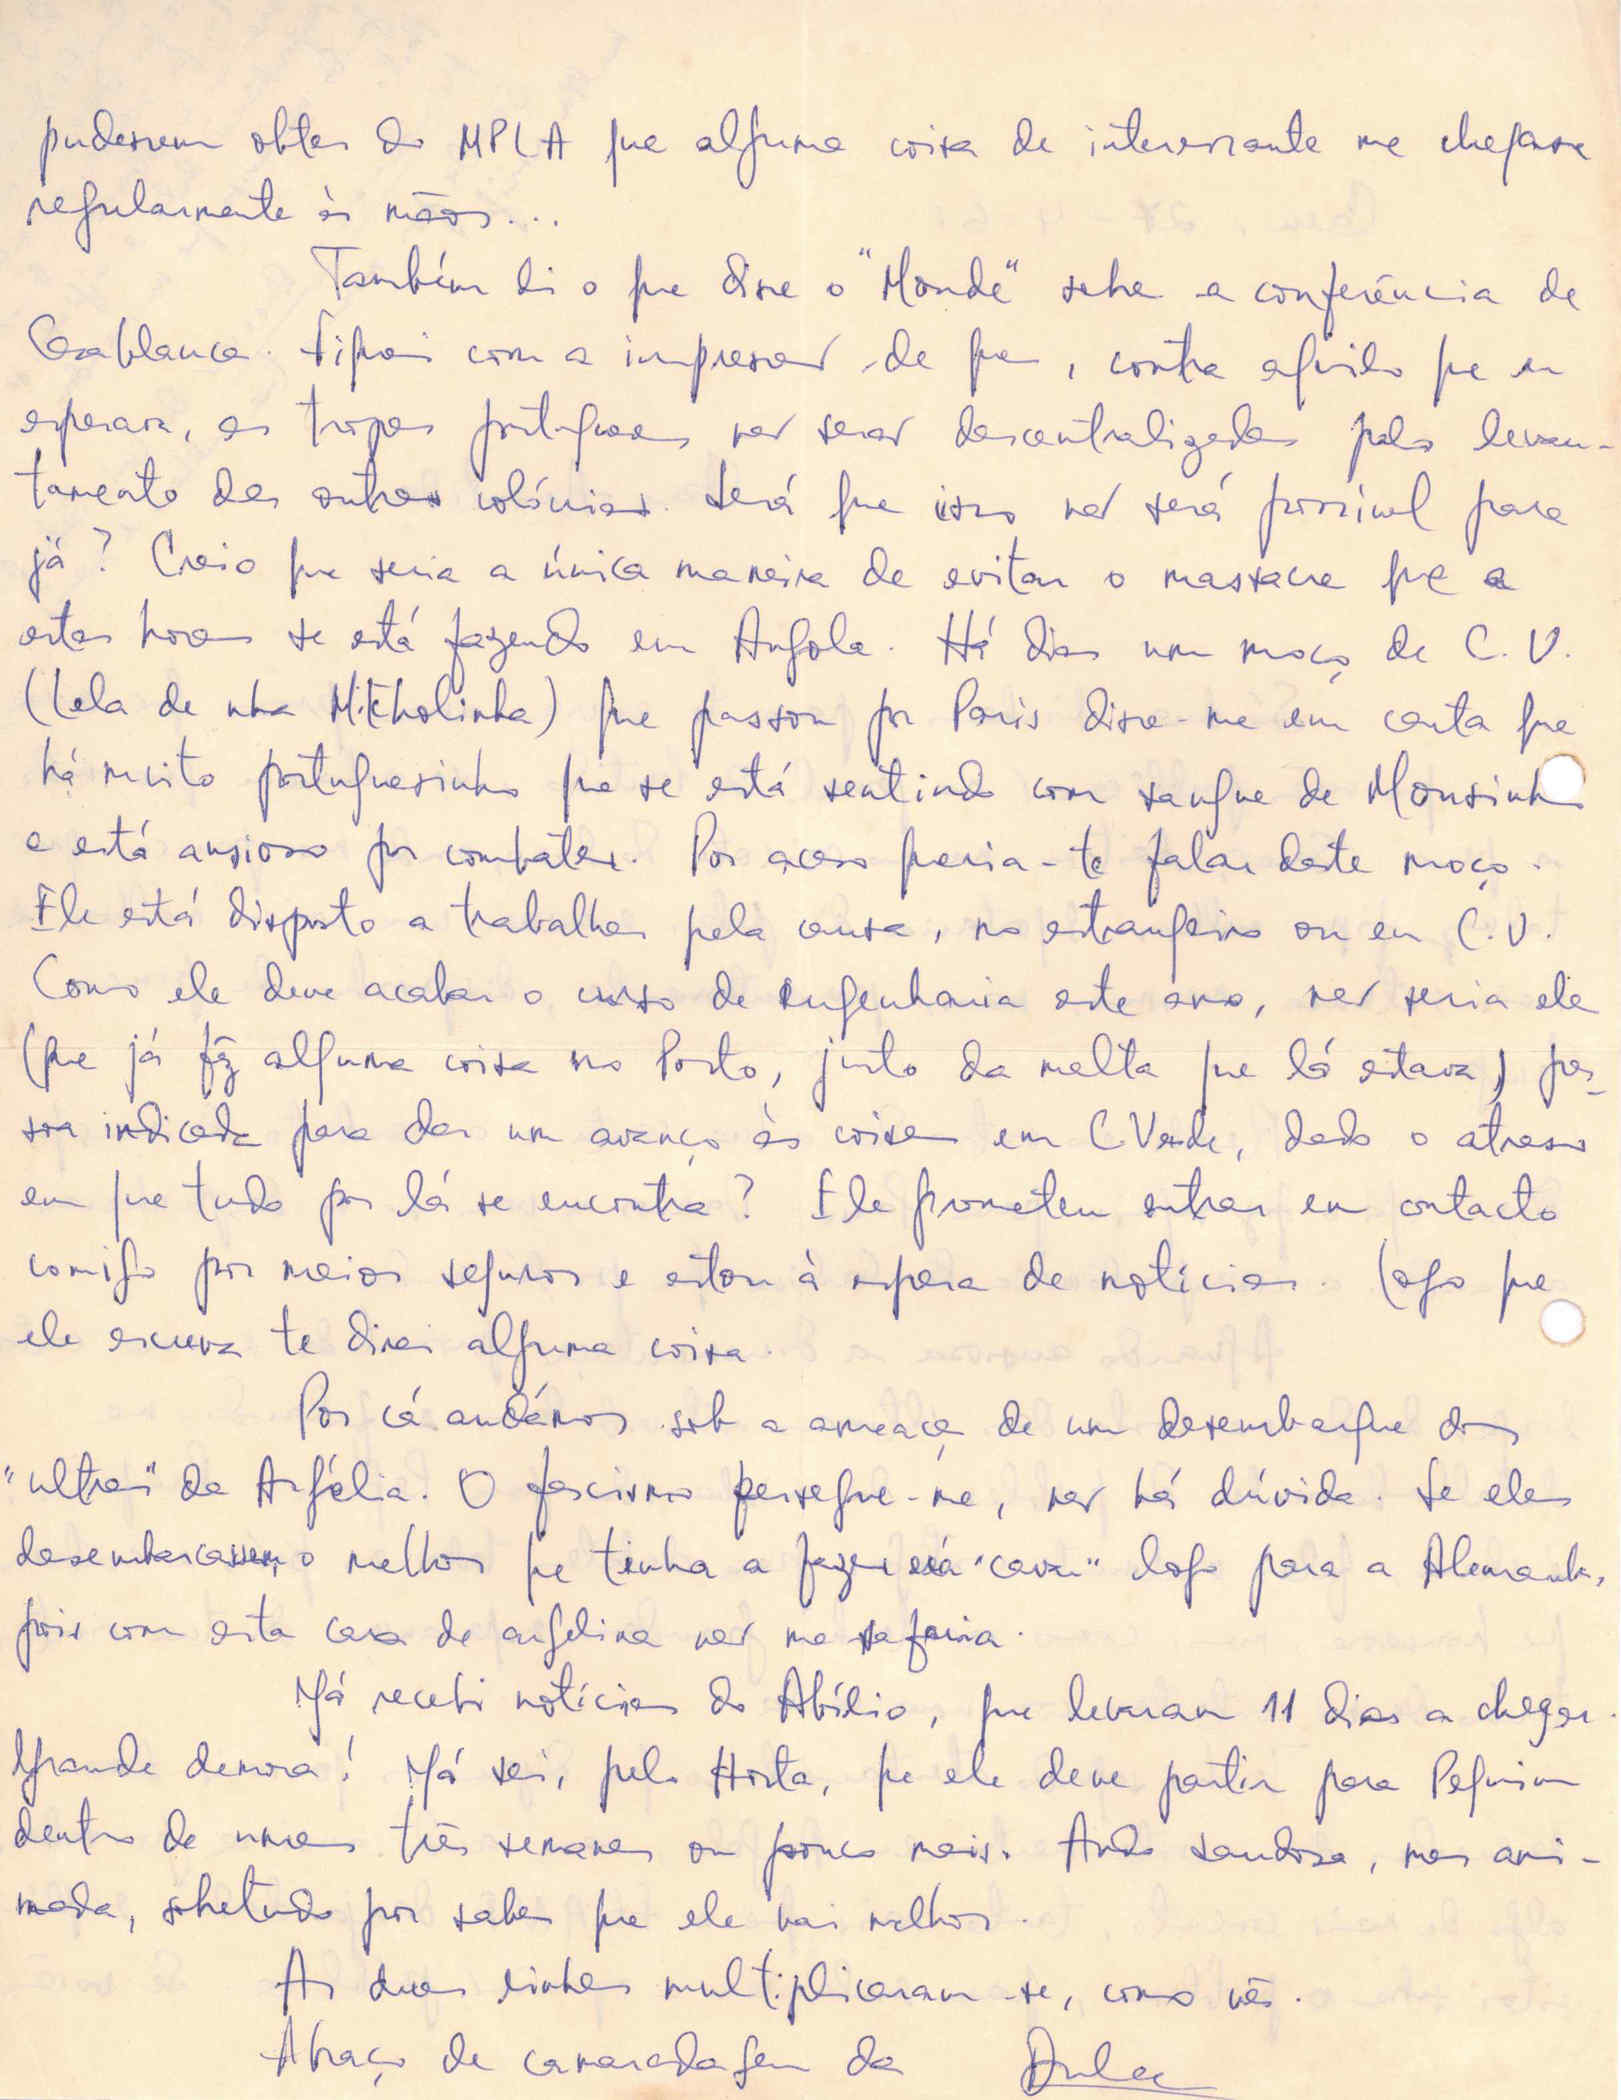 pudessem obter do MPLA que alguma coisa de interessante me chegasse
regularmente às mãos...
Também li o que disse o "Monde" sobre a conferência de
Casablanca. Fiquei com a impressão de que, contra aquilo que eu
esperava, as tropas portuguesas não serão descentralizadas pelo levan-
tamento das outras colónias. Será que isso não será possível para
já? Creio que seria a única maneira de evitar o massacre que a
estas horas se está fazendo em Angola. Há dias um moço de C.V.
(Lela de nha Mitcholinha) que passou por Paris disse-me em carta que
há muito portuguesinho que se está sentindo com sangue de Mousinho
e está ansioso por combater. Por acaso queria-te falar deste moço.
Ele está disposto a trabalhar pela causa, no estrangeiro ou em C.V.
Como ele deve acabar o curso de engenharia este ano, não seria ele
(que já fêz alguma coisa no Porto, junto da malta que lá estava) pes-
soa indicada para dar um avanço às coisas em C Verde, dado o atraso
em que tudo por lá se encontra? Ele prometeu entrar em contacto
comigo por meios seguros e estou à espera de notícias. Logo que
ele escreva te direi alguma coisa.
Por cá andámos sob a ameaça de um desembarque dos
"ultras" da Argélia. O fascismo persegue-me, não há dúvida. Se eles
desembarcassem, o melhor que tinha a fazer era "cavar" logo para a Alemanha,
pois com esta cara de argelina não me safaria.
Já recebi notícias do Abílio, que levaram 11 dias a chegar.
Grande demora! Já sei, pelo Horta, que ele deve partir para Pequim
dentro de umas três semanas ou pouco mais. Ando saudosa, mas ani-
mada, sobretudo por saber que ele vai melhor.
As duas linhas multiplicaram-se, como vês.
Abraço de camaradagem da Dulce